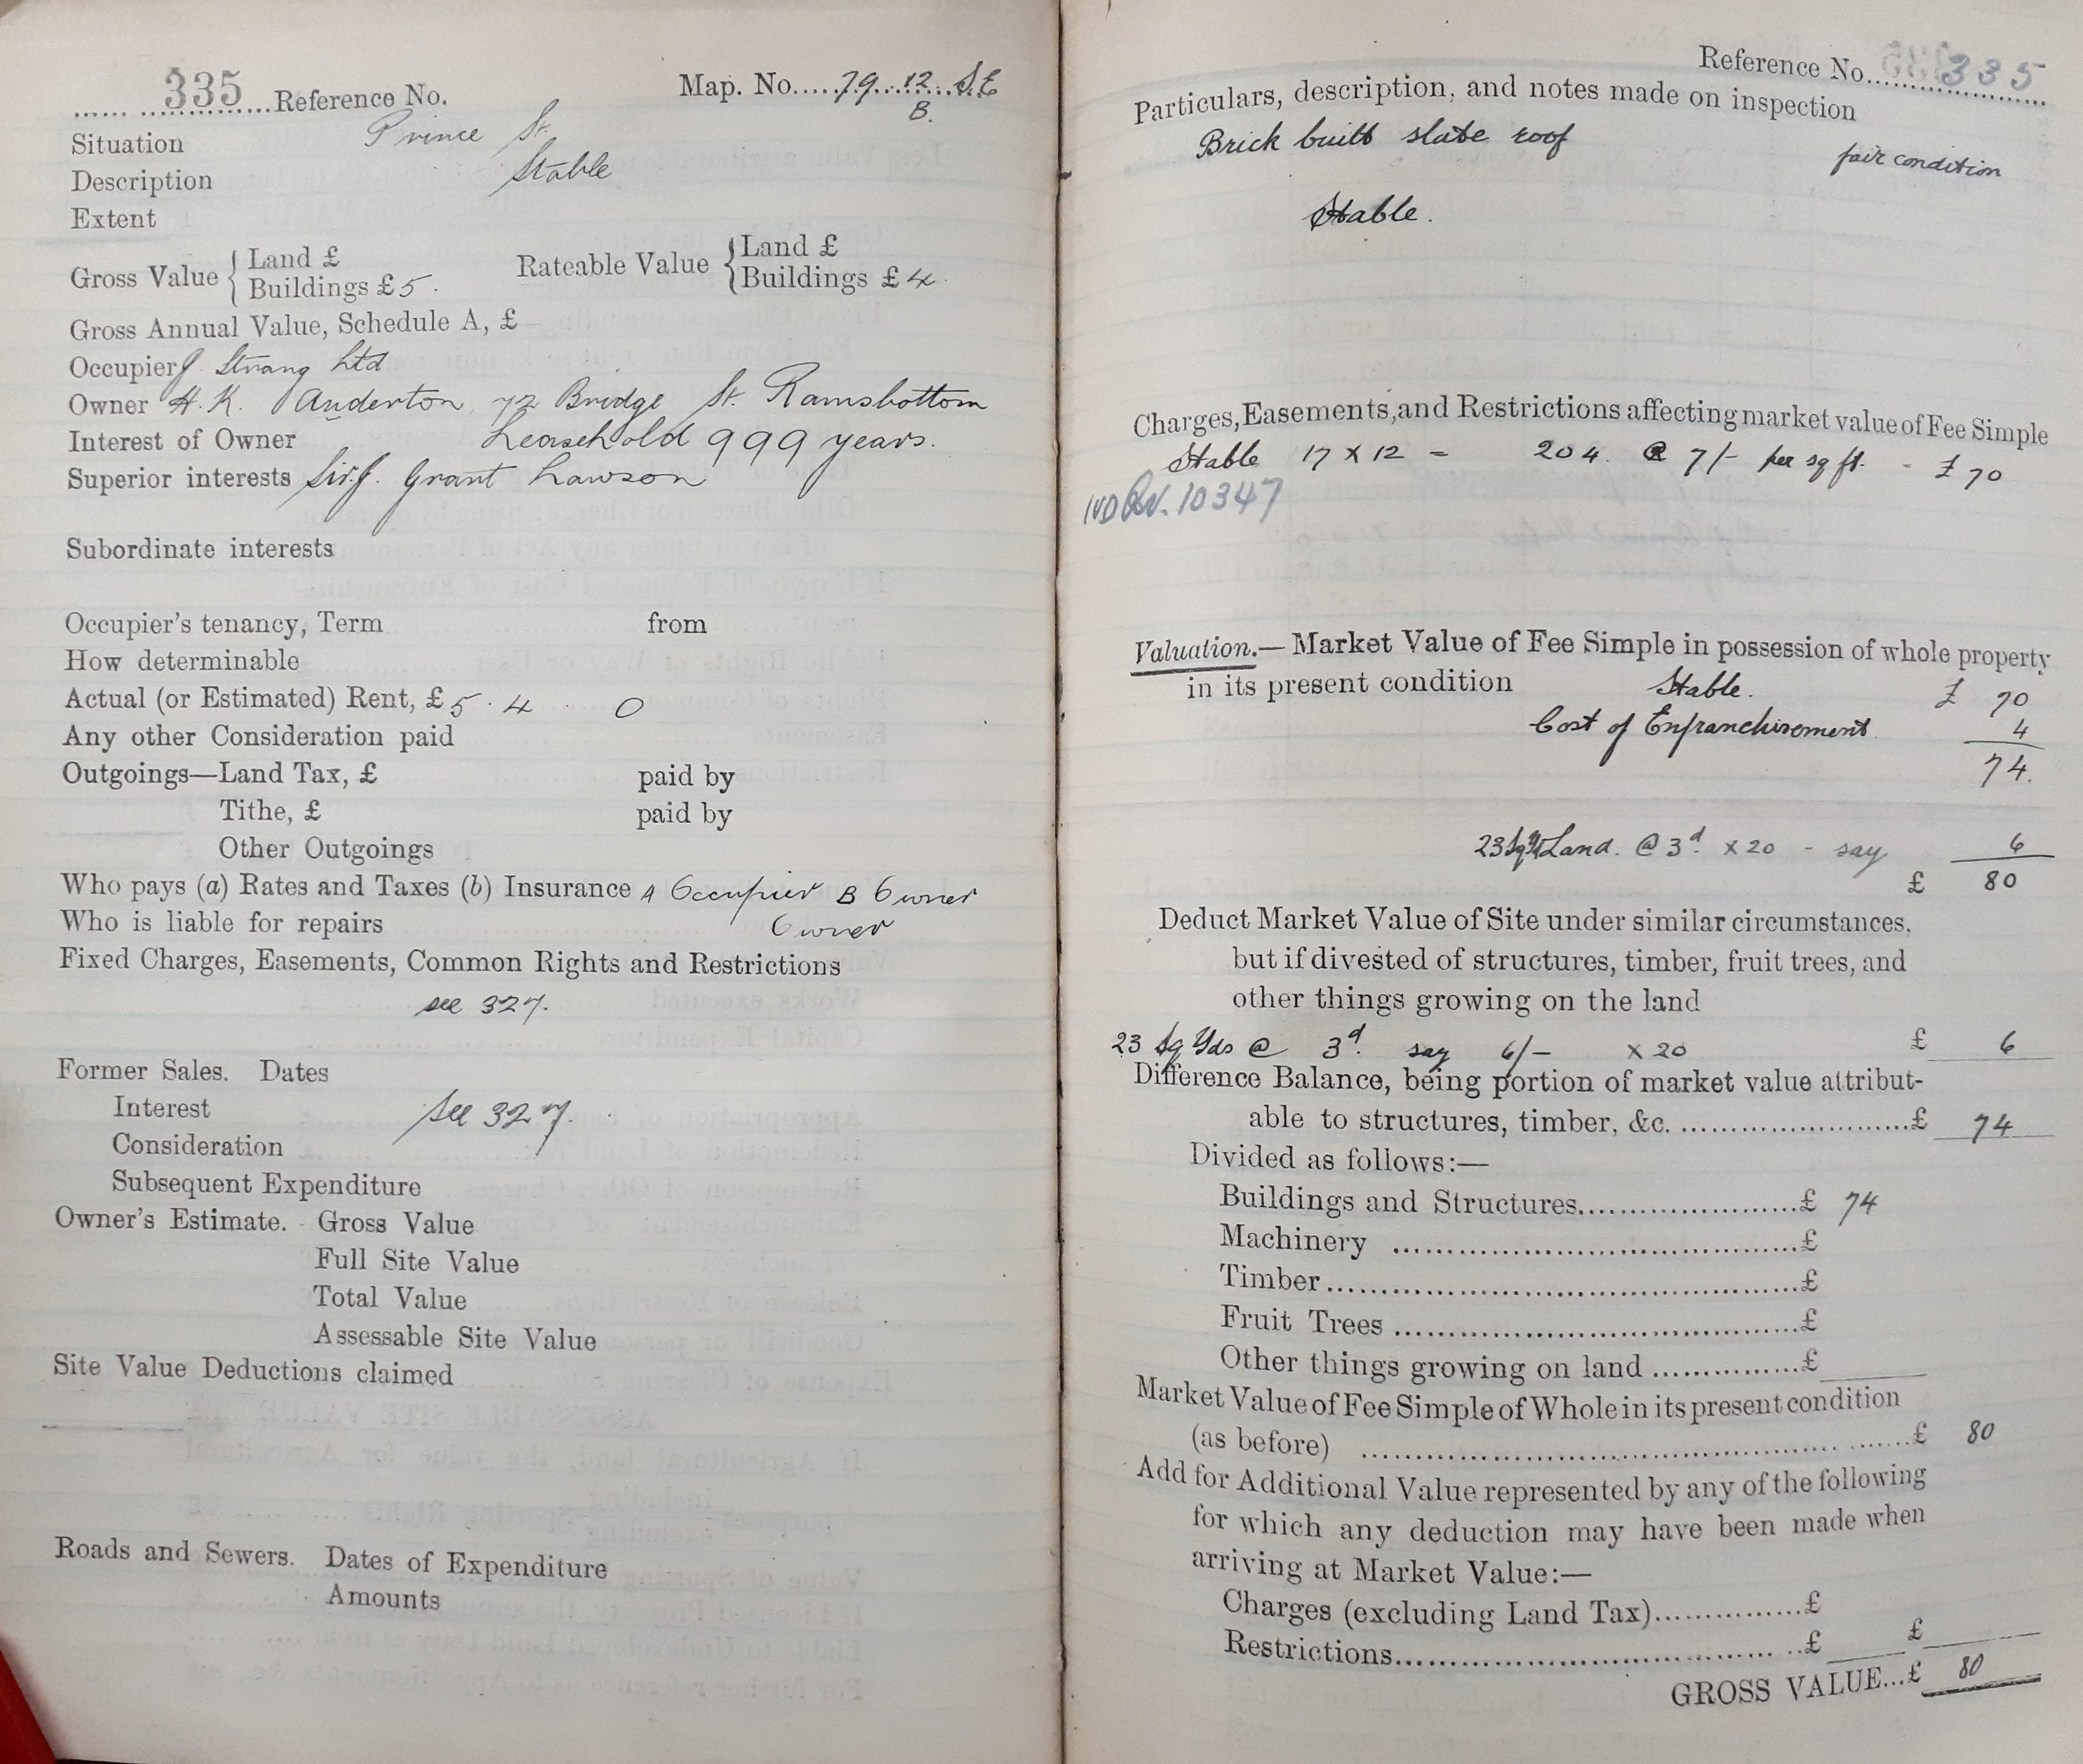 335 Reference No. Map. No. 79.12. S.E
B.
Situation Prince St.
Description Stable
Extent
Gross Value { Land £ Rateable Value { Land £
Buildings £ 5. Buildings £ 4
Gross Annual Value, Schedule A, £
Occupier J Strang Ltd
Owner H.K. Anderton 72 Bridge St. Ramsbottom
Interest of Owner Leasehold 999 years.
Superior interests Sir J. Grant Lawson
Subordinate interests
Occupier's tenancy, Term from
How determinable
Actual (or Estimated) Rent, £ 5 . 4 . 0
Any other Consideration paid
Outgoings—Land Tax, £ paid by
Tithe, £ paid by
Other Outgoings
Who pays (a) Rates and Taxes (b) Insurance A Occupier B Owner
Who is liable for repairs Owner
Fixed Charges, Easements, Common Rights and Restrictions
see 327.
Former Sales. Dates
Interest See 327.
Consideration
Subsequent Expenditure
Owner's Estimate. Gross Value
Full Site Value
Total Value
Assessable Site Value
Site Value Deductions claimed
Roads and Sewers. Dates of Expenditure
Amounts
Reference No. 335
Particulars, description, and notes made on inspection
Brick built slate roof fair condition
Stable.
Charges, Easements, and Restrictions affecting market value of Fee Simple
Stable 17 x 12 = 204. @ 7/- per sq ft. - £70
10347
Valuation.—Market Value of Fee Simple in possession of whole property
in its present condition Stable. £ 70
Cost of Enfranchisement 4
74.
23 Sq Yds Land. @ 3d. x 20 - say 6
£ 80
Deduct Market Value of Site under similar circumstances,
but if divested of structures, timber, fruit trees, and
other things growing on the land
23 Sq Yds @ 3d. say 6/- x 20 £ 6
Difference Balance, being portion of market value attribut-
able to structures, timber, &c. £ 74
Divided as follows:—
Buildings and Structures £ 74
Machinery £
Timber £
Fruit Trees £
Other things growing on land £
Market Value of Fee Simple of Whole in its present condition
(as before) £ 80
Add for Additional Value represented by any of the following
for which any deduction may have been made when
arriving at Market Value:—
Charges (excluding Land Tax) £
Restrictions £ £
GROSS VALUE...£ 80